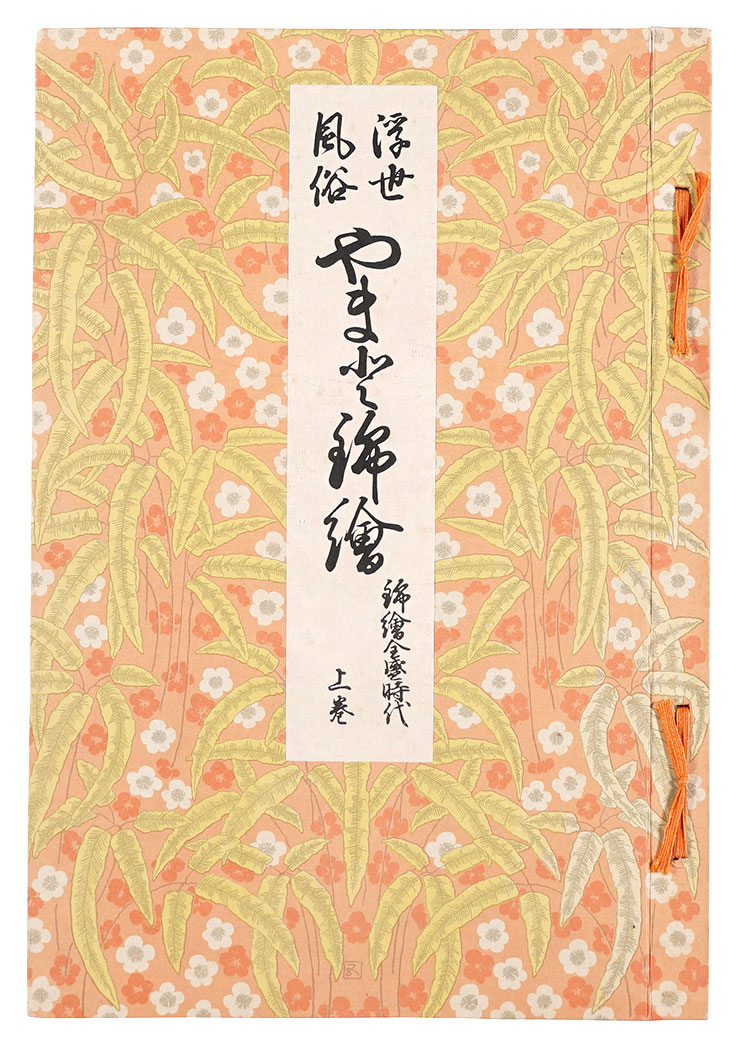 浮世
風俗
やまと錦繪
錦繪全盛時代
上巻